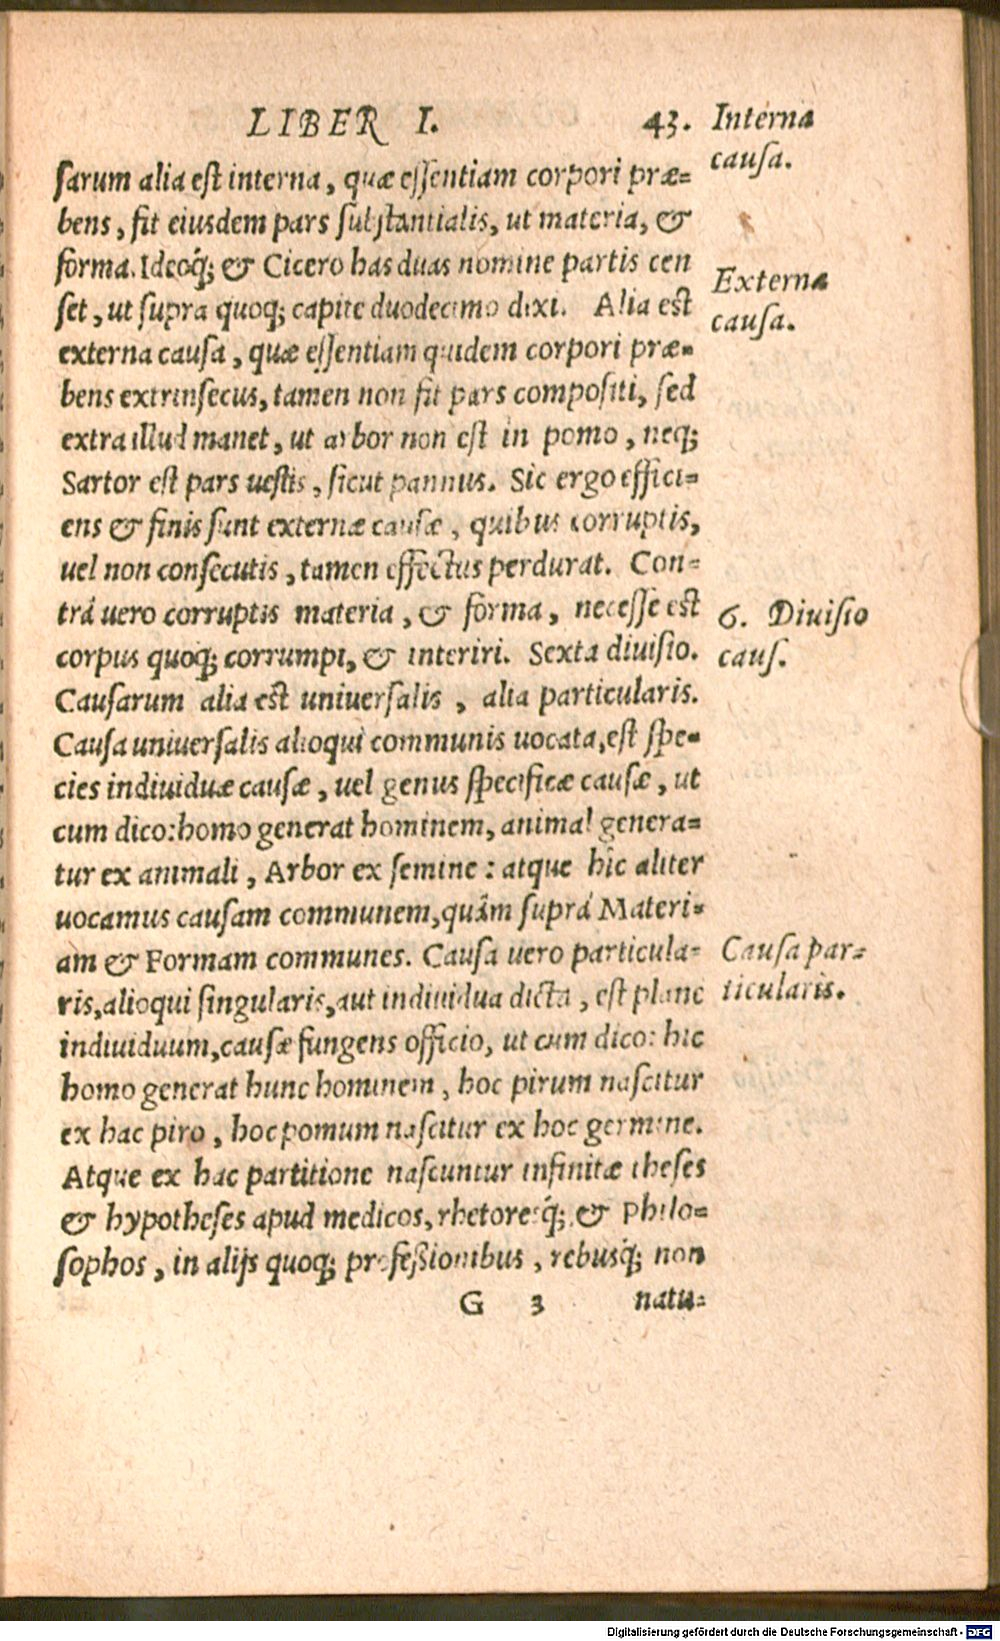 LIBER I. 43.
Interna
causa.
sarum alia est interna, quæ essentiam corpori præ=
bens, fit eiusdem pars substantialis, ut materia, &
forma. Ideoq́; & Cicero has duas nomine partis cen
set, ut supra quoq; capite duodecimo dixi. Alia est
Externa
causa.
externa causa, quæ essentiam quidem corpori præ=
bens extrinsecus, tamen non fit pars compositi, sed
extra illud manet, ut arbor non est in pomo, neq;
Sartor est pars uestis, sicut pannus. Sic ergo effici=
ens & finis sunt externæ causæ, quibus corruptis,
uel non consecutis, tamen effectus perdurat. Con=
trà uero corruptis materia, & forma, necesse est
corpus quoq; corrumpi, & interiri. Sexta diuisio.
6. Diuisio
caus.
Causarum alia est uniuersalis, alia particularis.
Causa uniuersalis alioqui communis uocata, est spe=
cies indiuiduæ causæ, uel genus specificæ causæ, ut
cum dico: homo generat hominem, animal genera=
tur ex animali, Arbor ex semine: atque hic aliter
uocamus causam communem, quàm suprà Materi=
am & Formam communes. Causa uero particula=
Causa par=
ticularis.
ris, alioqui singularis, aut indiuidua dicta, est plane
indiuiduum, causæ fungens officio, ut cum dico: hic
homo generat hunc hominem, hoc pirum nascitur
ex hac piro, hoc pomum nascitur ex hoc germine.
Atque ex hac partitione nascuntur infinitæ theses
& hypotheses apud medicos, rhetoresq́; & Philo=
sophos, in alijs quoq; professionibus, rebusq́; non
G 3 natu=
Digitalisierung gefördert durch die Deutsche Forschungsgemeinschaft - DFG